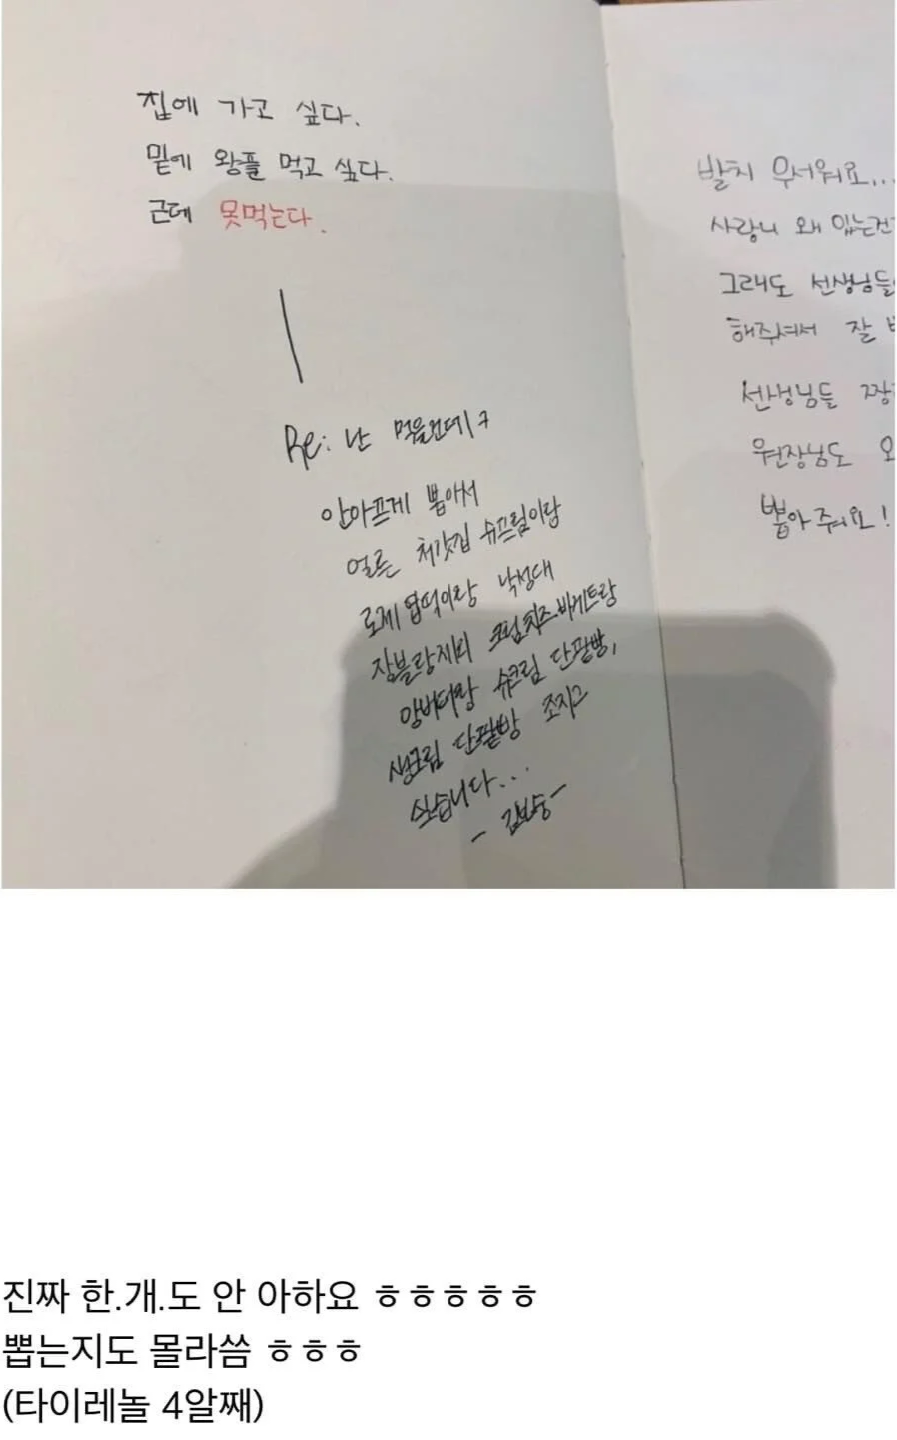 집에 가고 싶다.
밑에 왕플 먹고 싶다.
근데 못먹는다.
Re: 난 먹을건데ㅋ
안아프게 뽑아서
얼른 처갓집 슈프림이랑
로제 엽떡이랑 낙성대
장블랑제리 크림치즈바게트랑
앙버터랑 슈크림 단팥빵,
생크림 단팥빵 조지고
싶습니다...
발치 무서워요...
사랑니 왜 있는건
그래도 선생님들
해주셔서 잘
선생님들 짱
원장님도
뽑아줘요!
진짜 한.개.도 안 아하요 ㅎㅎㅎㅎㅎ
뽑는지도 몰라씀 ㅎㅎㅎ
(타이레놀 4알째)